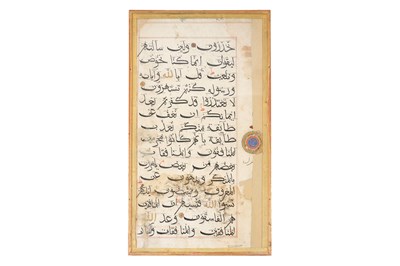 تحذرون ولئن سالتهم
ليقولن انما كنا نخوض
ونلعب قل ابالله وآياته
ورسوله كنتم تستهزون
لا تعتذروا قد كفرتم بعد
ايمانكم ان نعف عن
طايفة منكم نعذب
طايفة بانهم كانوا
المنافقون والمنافقات
بعضهم من بعض
بالمنكر وينهون عن
المعروف ويقبضون ايديهم
نسوا الله فنسيهم ان المنافقين
هم الفاسقون وعد الله
المنافقين والمنافقات